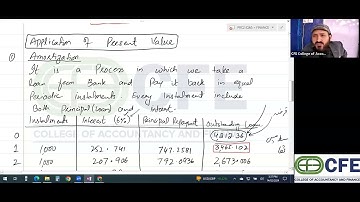 PRC2 QAFB - FINANCE
Application of Present Value
① Amortization
It is a Process in which we take a
loan from Bank and Pay it back in equal
Periodic instalments. Every instalment include
Both Principal (Loan) and interest.
Instalments Interest (6%) Principal Repayment Outstanding Loan
0 4212.36
1 1,000 252.741 747.2581 3465.102
2 1,000 207.906 792.0936 2,673.006
COLLEGE OF ACCOUNTANCY AND FINANCE
CFE College of Acco...
CFE
COLLEGE OF ACCOUNTANCY AND FINANCE